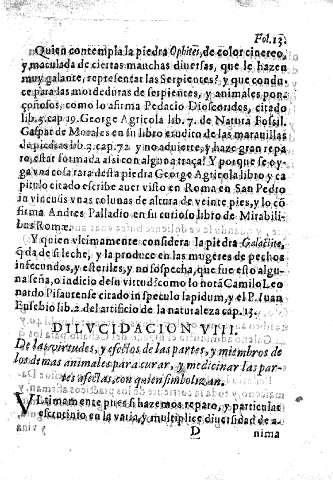 Fol. 13.
Quien contempla la piedra Ophites, de color cinereo,
y maculada de ciertas manchas diversas, que le hazen
muy galante, representar las Serpientes? y que condu-
ce para las mordeduras de serpientes, y animales pon-
çoñosos, como lo afirma Pedacio Dioscorides, citado
lib. 5. cap 19. George Agricola lib. 7. de Natura Fossil.
Gaspar de Morales en su libro erudito de las maravillas
de piedras lib. 3. cap. 72. y no advierte, y haze gran repa-
ro, estar formada assi con alguna traça? Y porque se o y-
ga vna cosa rara desta piedra George Agricola libro y ca
pitulo citado escribe auer visto en Roma en San Pedro
an vincuus vnas colunas de altura de veinte pies, y lo cō
firma Andres Palladio en su curioso libro de Mirabili-
bus Romæ.
Y quien vlcimamente considera la piedra Galactite,
q̄ da de si leche, y la produce en las mugeres de pechos
infecundos, y esteriles, y no sospecha, que fue esto algu-
na seña, o indicio de su virtud? como lo notā Camilo Leo
nardo Pisaurense citado in speculo lapidum, y el P. Iuan
Eusebio lib. 2. del artificio de la naturaleza cap. 13.
DILVCIDACION VIII.
De las virtudes, y efectos de las partes, y miembros de
los demas animales para curar, y medicinar las par-
tes afectas, con quien simbolizan.
VLtimamente pues si hazemos reparo, y particular
escrutinio en la varia, y multiplice diversidad de a-
D nima